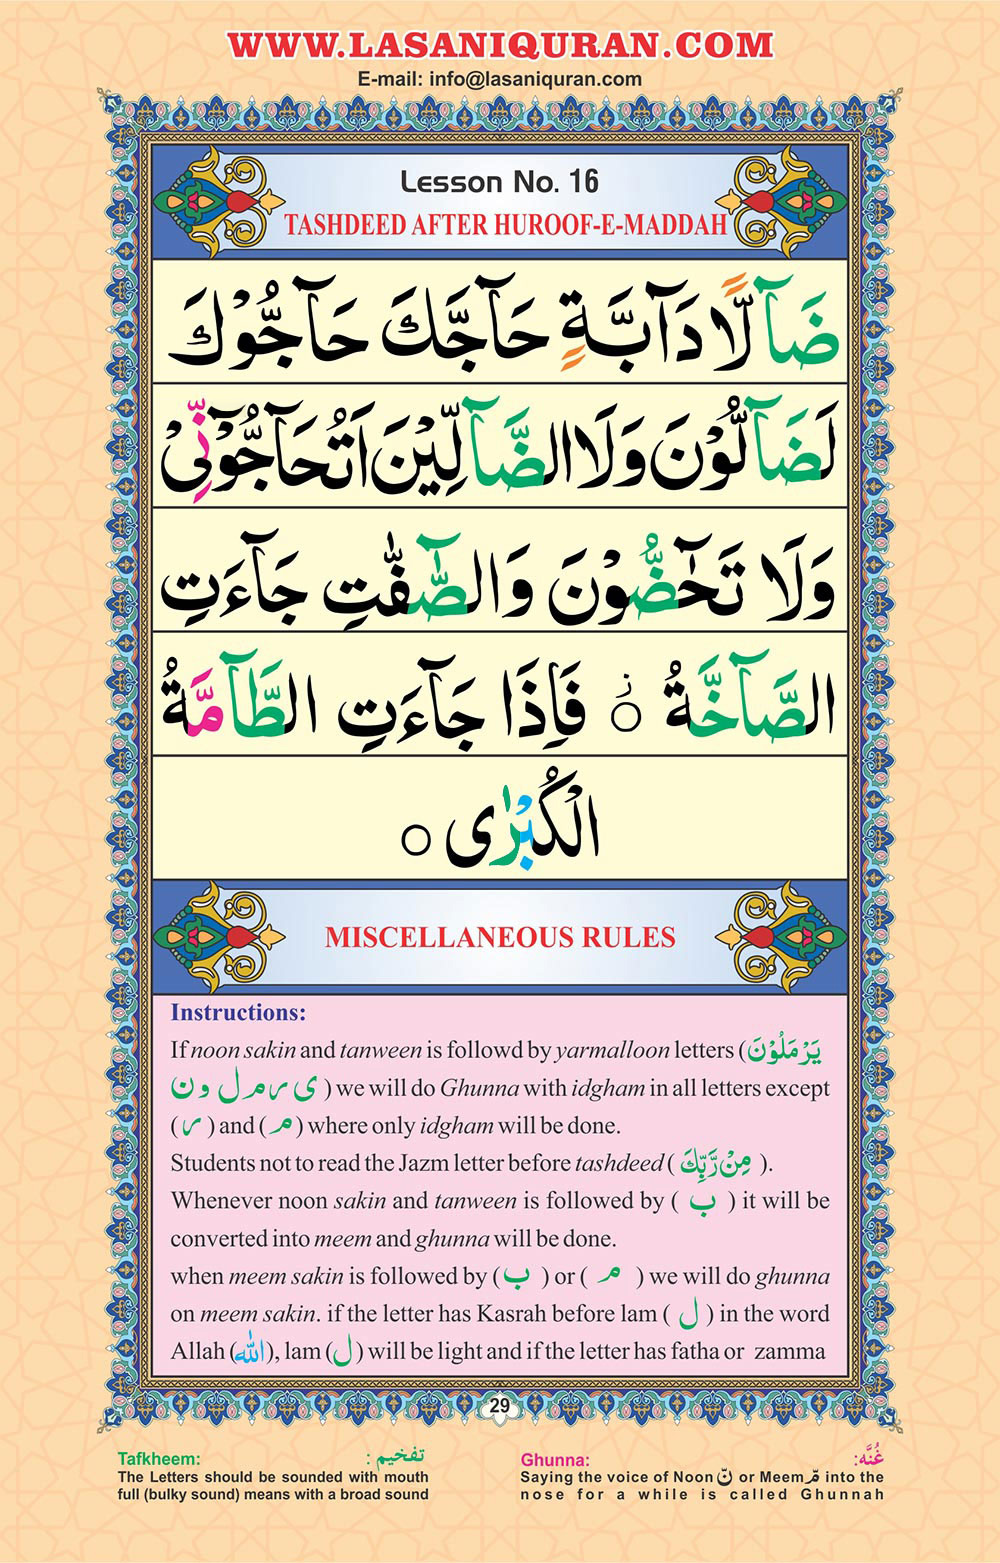 WWW.LASANIQURAN.COM
E-mail: info@lasaniquran.com
Lesson No. 16
TASHDEED AFTER HUROOF-E-MADDAH
ضَآلًّا دَآبَّةٍ حَآجَّكَ حَآجُّوْكَ
لَضَآلُّوْنَ وَلَا الضَّآلِّيْنَ اَتُحَآجُّوْٓنِّیْ
وَلَا تَحٰٓضُّوْنَ وَالصّٰٓفّٰتِ جَآءَتِ
الصَّآخَّةُ ۝ ز فَاِذَا جَآءَتِ الطَّآمَّةُ
الْكُبْرٰی ۝
MISCELLANEOUS RULES
Instructions:
If noon sakin and tanween is followd by yarmalloon letters (يَرْمَلُوْنَ
ی ر م ل و ن ) we will do Ghunna with idgham in all letters except
( ر ) and ( م ) where only idgham will be done.
Students not to read the Jazm letter before tashdeed ( مِنْ رَّبِّكَ ).
Whenever noon sakin and tanween is followed by ( ب ) it will be
converted into meem and ghunna will be done.
when meem sakin is followed by ( ب ) or ( م ) we will do ghunna
on meem sakin. if the letter has Kasrah before lam ( ل ) in the word
Allah (الله), lam ( ل ) will be light and if the letter has fatha or zamma
29
Tafkheem: تفخيم :
The Letters should be sounded with mouth
full (bulky sound) means with a broad sound
Ghunna: غُنَّه:
Saying the voice of Noon نّ or Meem مّ into the
nose for a while is called Ghunnah